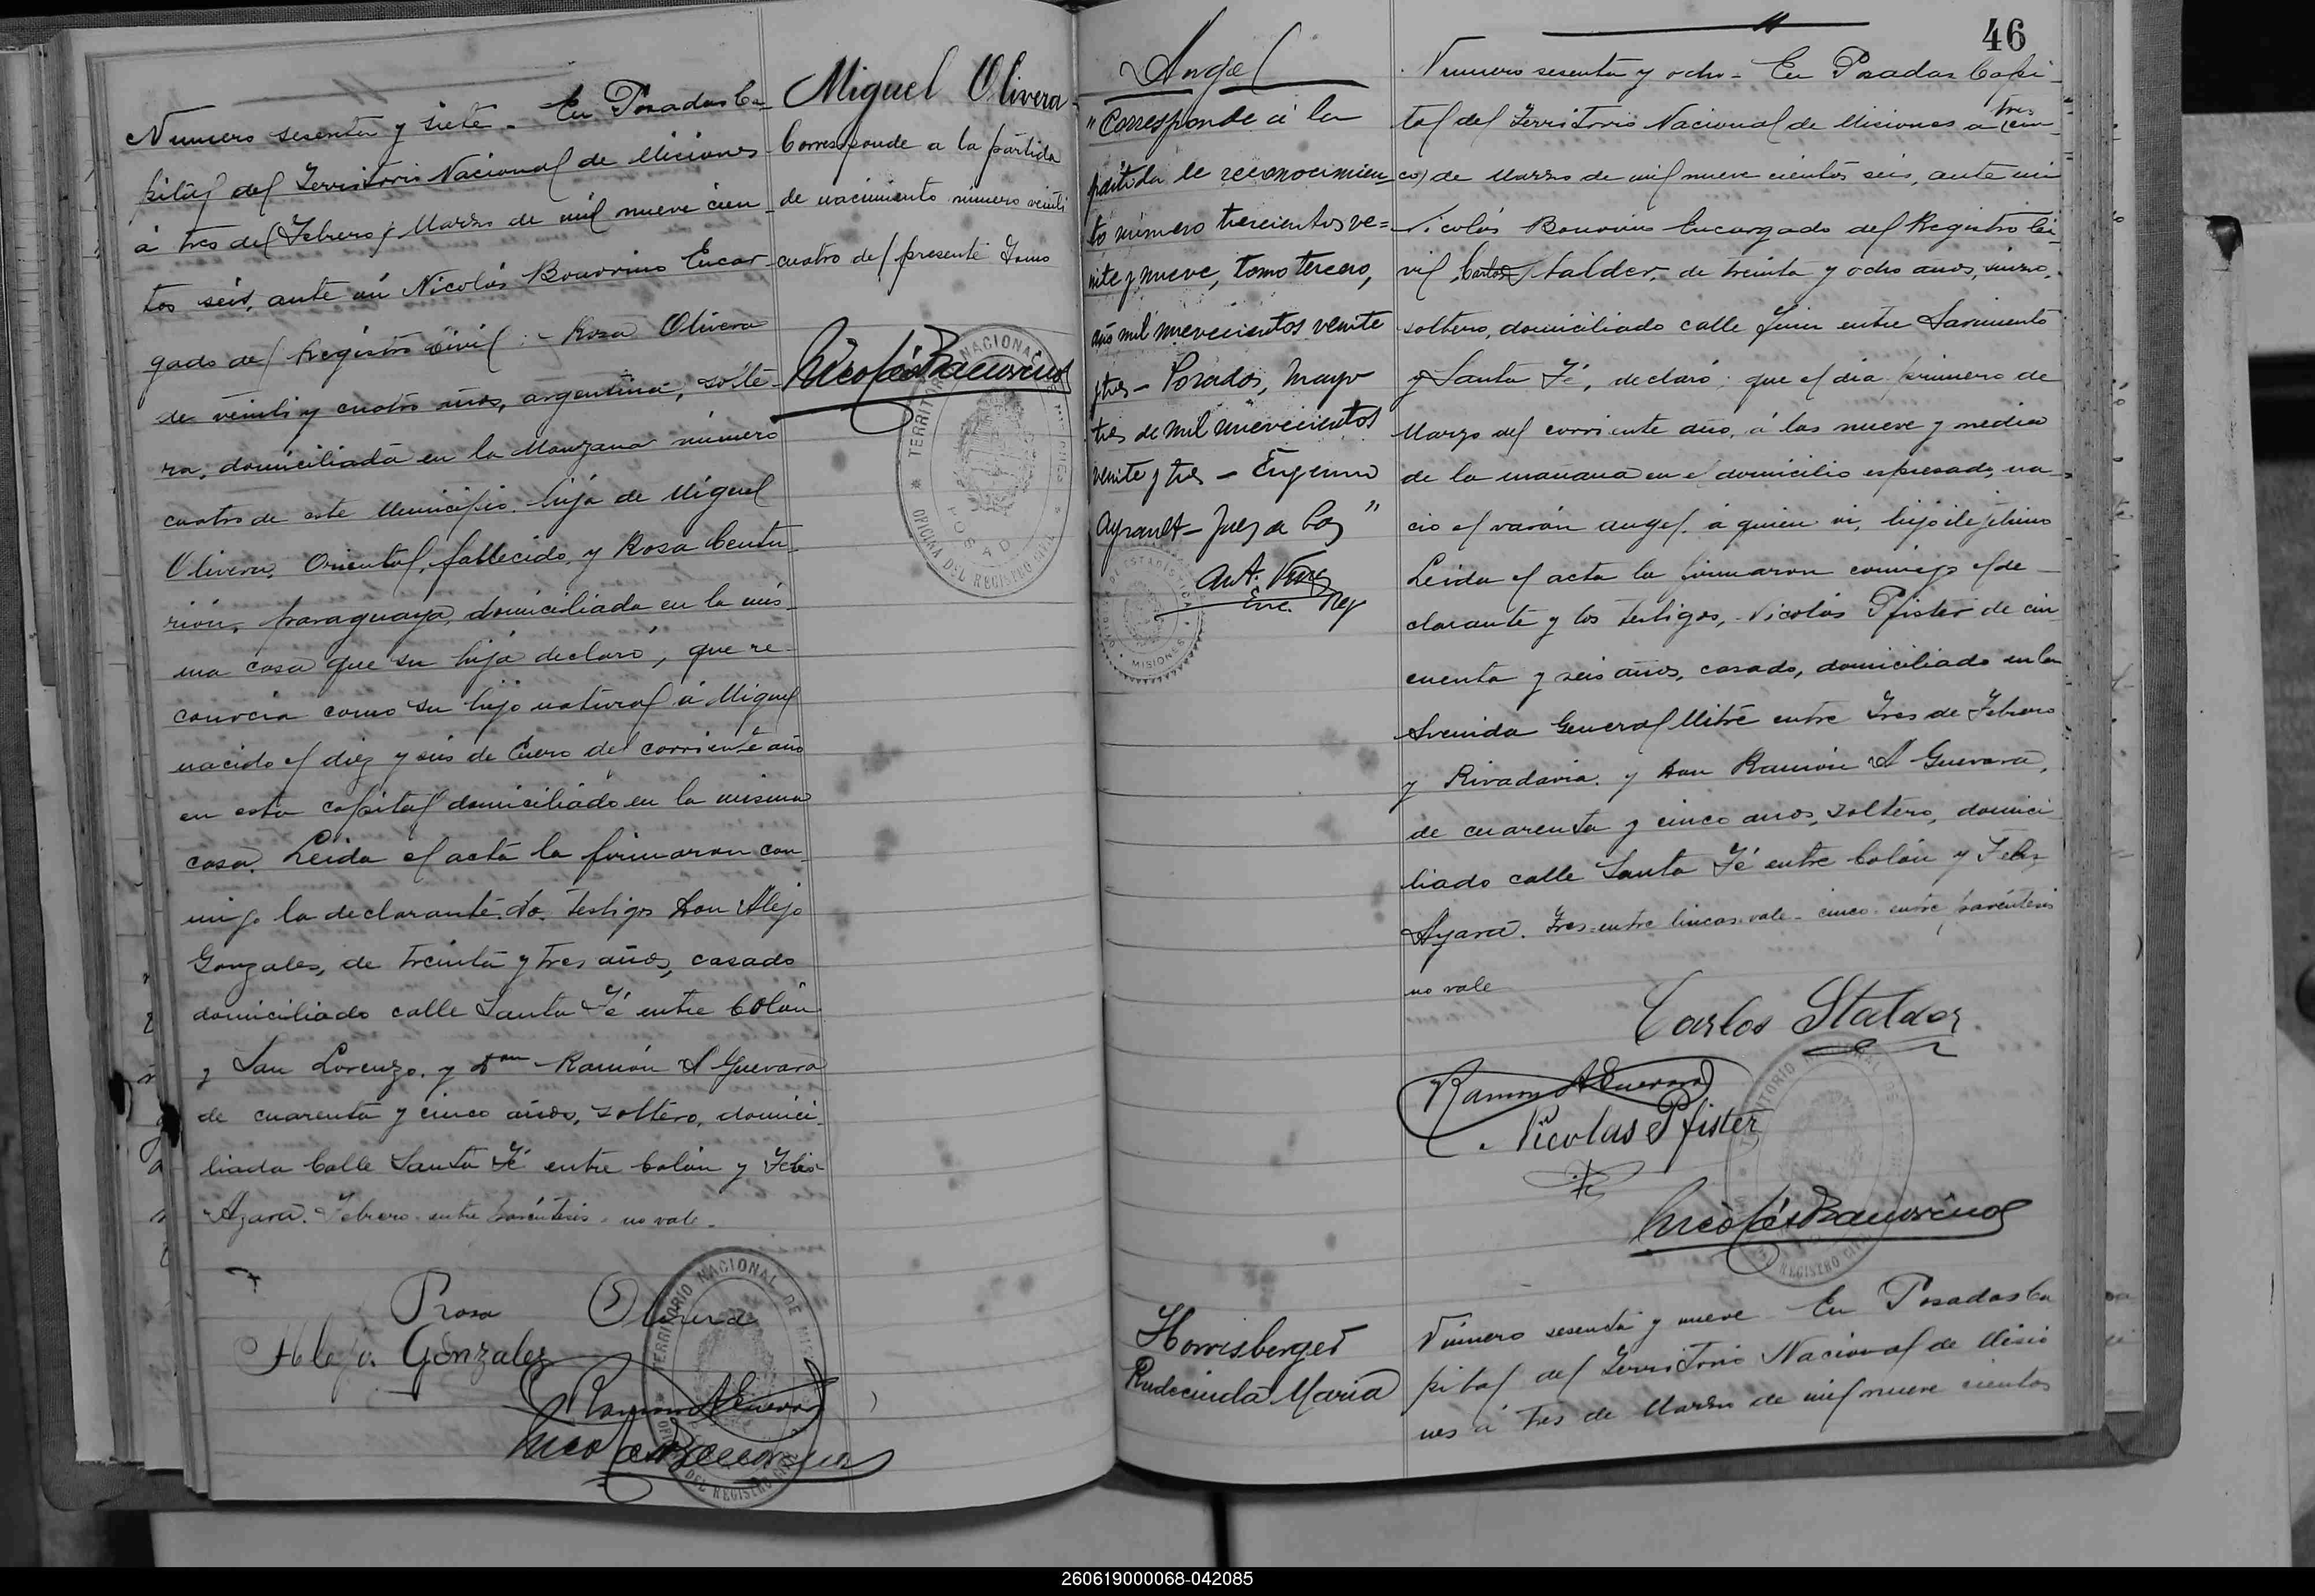 Numero sesenta y siete - En Posadas Ca-
pital del Territorio Nacional de Misiones
á tres de (Febrero) Marzo de mil nueve cien-
tos seis, ante mi Nicolás Bonorino Encar-
gado del Registro Civil: - Rosa Olivera
de veinti y cuatro años, argentina, solte-
ra, domiciliada en la Manzana número
cuatro de este Municipio, hija de Miguel
Olivera, Oriental, fallecido, y Rosa Centu-
rión, paraguaya, domiciliada en la mis-
ma casa que su hija declaró, que re-
conocia como su hijo natural á Miguel
nacido el diez y seis de Enero del corriente año
en esta capital domiciliado en la misma
casa. Leida el acta la firmaron con-
migo la declarante, los testigos Don Alejo
Gonzales, de treinta y tres años, casado
domiciliado calle Santa Fé entre Colón
y San Lorenzo, y Don Ramón A Guevara
de cuarenta y cinco años, soltero, domici-
liado Calle Santa Fé entre Colón y Felix
Azara. Febrero - entre paréntesis - no vale -
Rosa Olivera
Alejo Gonzalez
Ramon A Guevara
Nicolás Bonorino
TERRITORIO NACIONAL DE MISIONES
OFICINA DEL REGISTRO CIVIL
Miguel Olivera
Corresponde a la partida
de nacimiento número veinti
cuatro del presente Tomo
Nicolás Bonorino
TERRITORIO NACIONAL DE MISIONES
POSADAS
OFICINA DEL REGISTRO CIVIL
46
Angel
"Corresponde á la
partida de reconocimien-
to número trescientos ve=
inte y nueve, tomo tercero,
año mil novecientos veinte
y tres - Posadas, Mayo
tres de mil novecientos
veinte y tres - Eugenio
Ayrault - Juez de Paz"
Enc. Reg
ESTADISTICA
MISIONES
Numero sesenta y ocho - En Posadas Capi-
tal del Territorio Nacional de Misiones a tres (cin-
co) de Marzo de mil nueve cientos seis, ante mi
Nicolás Bonorino Encargado del Registro Ci-
vil, Carlos Stalder, de treinta y ocho años, suizo,
soltero, domiciliado calle Junin entre Sarmiento
y Santa Fé, declaró: que el dia primero de
Marzo del corriente año, á las nueve y media
de la mañana en el domicilio espresado, na-
ció el varón Angel, á quien vi, hijo ilejítimo
Leida el acta la firmaron conmigo el de-
clarante y los testigos, Nicolás Pfister de cin
cuenta y seis años, casado, domiciliado en la
Avenida General Mitre entre Tres de Febrero
y Rivadavia, y Don Ramón A Guevara,
de cuarenta y cinco años, soltero, domici
liado calle Santa Fé entre Colón y Felix
Azara. Tres - entre lineas - vale - cinco - entre paréntesis
no vale
Carlos Stalder
Ramon A Guevara
Nicolas Pfister
Nicolás Bonorino
REGISTRO CIVIL
Horrisberger
Rudecinda Maria
Número sesenta y nueve - En Posadas Ca
pital del Territorio Nacional de Misio
nes á tres de Marzo de mil nueve cientos
260619000068-042085